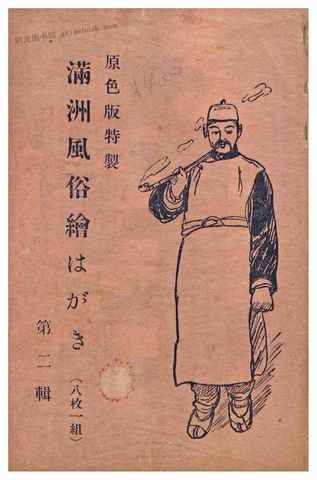 原色版特製
滿洲風俗繪はがき
(八枚一組)
第二輯